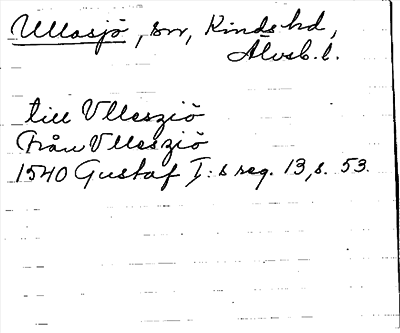 Ullasjö, sn, Kinds hd,
Älvsb. l.
till Vllesziö
Från Vllesziö
1540 Gustaf I:s reg. 13, s. 53.